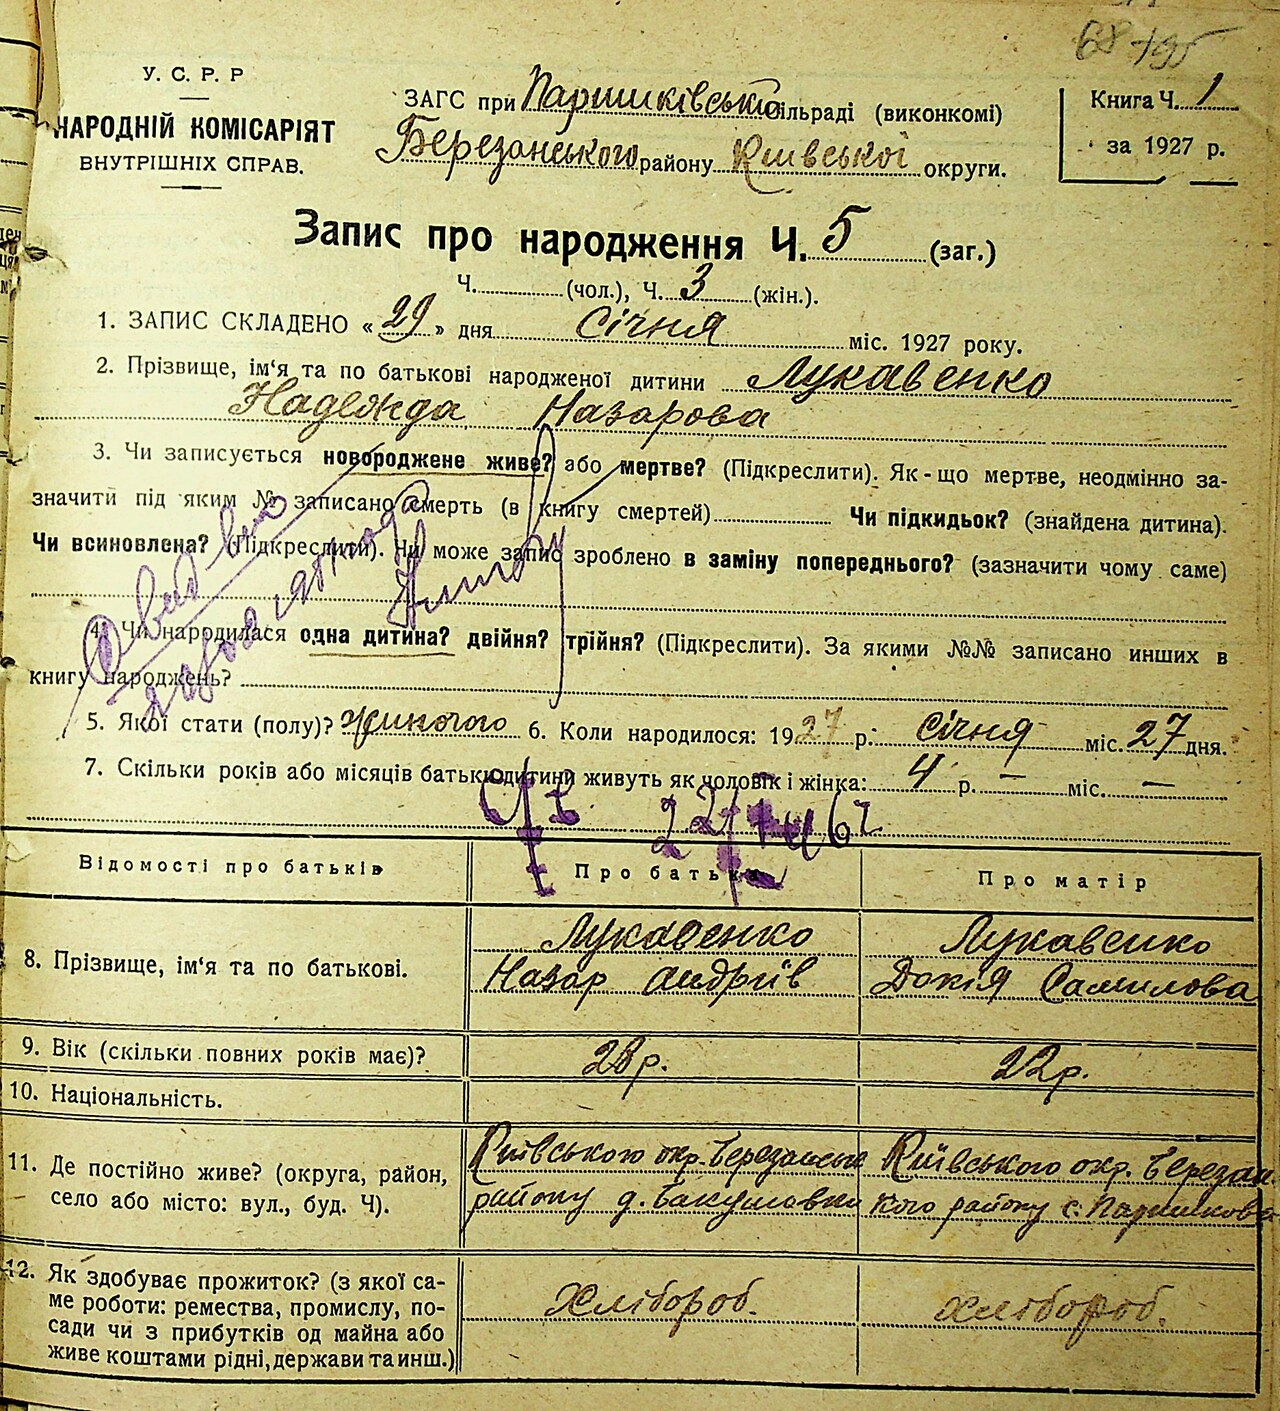 У. С. Р. Р
НАРОДНІЙ КОМІСАРІЯТ
ВНУТРІШНІХ СПРАВ.
ЗАГС при Паришківській сільраді (виконкомі)
Березанського району Київської округи.
Книга Ч. 1
за 1927 р.
Запис про народження Ч. 5 (заг.)
Ч. (чол.), Ч. 3 (жін.).
1. ЗАПИС СКЛАДЕНО «29» дня Січня міс. 1927 року.
2. Прізвище, ім'я та по батькові народженої дитини Лукавенко
Надежда Назарова
3. Чи записується новороджене живе? або мертве? (Підкреслити). Як-що мертве, неодмінно за-
значити під яким № записано смерть (в книгу смертей) Чи підкидьок? (знайдена дитина).
Чи всиновлена? (Підкреслити). Чи може запис зроблено в заміну попереднього? (зазначити чому саме)
4. Чи народилася одна дитина? двійня? трійня? (Підкреслити). За якими №№ записано инших в
книгу народжень?
5. Якої стати (полу)? жиночого 6. Коли народилося: 1927 р. Січня міс. 27 дня.
7. Скільки років або місяців батьки дитини живуть як чоловік і жінка: 4 р. — міс. —
Відомості про батьків
Про батька
Про матір
8. Прізвище, ім'я та по батькові.
Лукавенко
Назар Андріїв
Лукавенко
Докія Самилова
9. Вік (скільки повних років має)?
28 р.
22 р.
10. Національність.
11. Де постійно живе? (округа, район,
село або місто: вул., буд. Ч).
Київського окр. Березанськ
району д. Бакумовки
Київського окр. Березан
кого району с. Паришков
12. Як здобуває прожиток? (з якої са-
ме роботи: ремества, промислу, по-
сади чи з прибутків од майна або
живе коштами рідні, держави та инш.)
Хлібороб.
хлібороб.